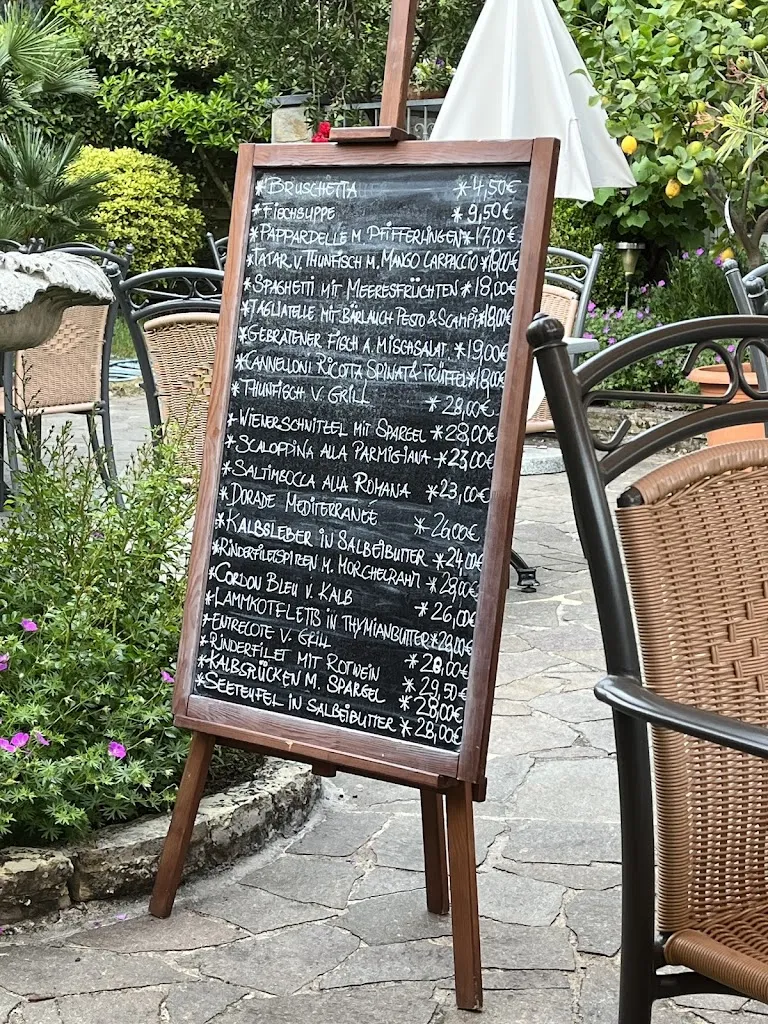 *BRUSCHETTA *4,50€
*FISCHSUPPE *9,50€
*PAPPARDELLE M. PFIFFERLINGEN*17,00€
*TATAR V. THUNFISCH M. MANGO CARPACCIO*18,00€
*SPAGHETTI MIT MEERESFRÜCHTEN *18,00€
*TAGLIATELLE MIT BÄRLAUCH PESTO & SCAMPI*18,00€
*GEBRATENER FISCH A. MISCHSALAT. *19,00€
*CANNELLONI RICOTTA SPINAT & TRÜFFEL*18,00€
*THUNFISCH V. GRILL *28,00€
*WIENERSCHNITZEL MIT SPARGEL *28,00€
*SCALOPPINA ALLA PARMIGIANA *23,00€
*SALTIMBOCCA ALLA ROMANA *23,00€
*DORADE MEDITERRANEE *26,00€
*KALBSLEBER IN SALBEIBUTTER *24,00€
*RINDERFILETSPITZEN M. MORCHELRAHM *29,00€
*CORDON BLEU V. KALB *26,00€
*LAMMKOTELETTS IN THYMIANBUTTER*28,00€
*ENTRECOTE V. GRILL *28,00€
*RINDERFILET MIT ROTWEIN *29,50€
*KALBSRÜCKEN M. SPARGEL *28,00€
*SEETEUFEL IN SALBEIBUTTER *28,00€